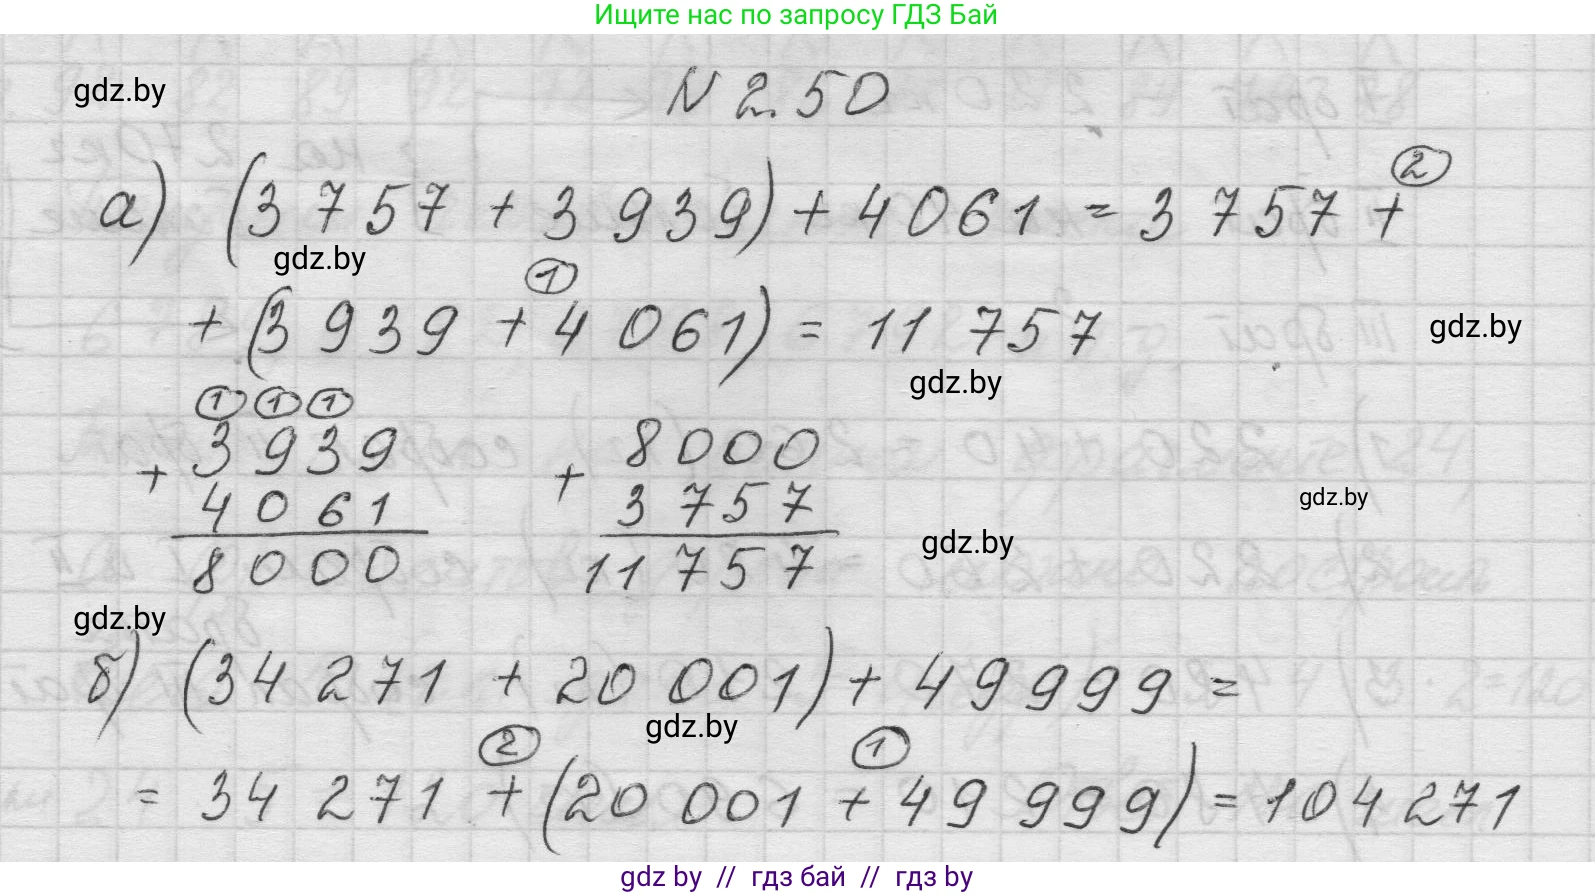 Ищите нас по запросу ГДЗ Бай
gdz.by
N 2.50
2
а) (3 757 + 3 939) + 4 061 = 3 757 +
gdz.by
1
+ (3 939 + 4 061) = 11 757
gdz.by
gdz.by
1 1 1
3 9 3 9
+
4 0 6 1
8 0 0 0
8 0 0 0
+
3 7 5 7
11 7 5 7
gdz.by
gdz.by
gdz.by
б) (34 271 + 20 001) + 49 999 =
gdz.by
2 1
= 34 271 + (20 001 + 49 999) = 104 271
gdz.by
gdz by // гдз бай // гдз by